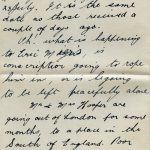 expertly. I.O is the same
date as those received a
couple of days ago.
Oh! what is happening
to Eric is
conscription going to rope
him in, or is he going
to be left peacefully alone
Mr & Mrs Hooper are
going out of London for some
months, to a place in the
South of England. Poor